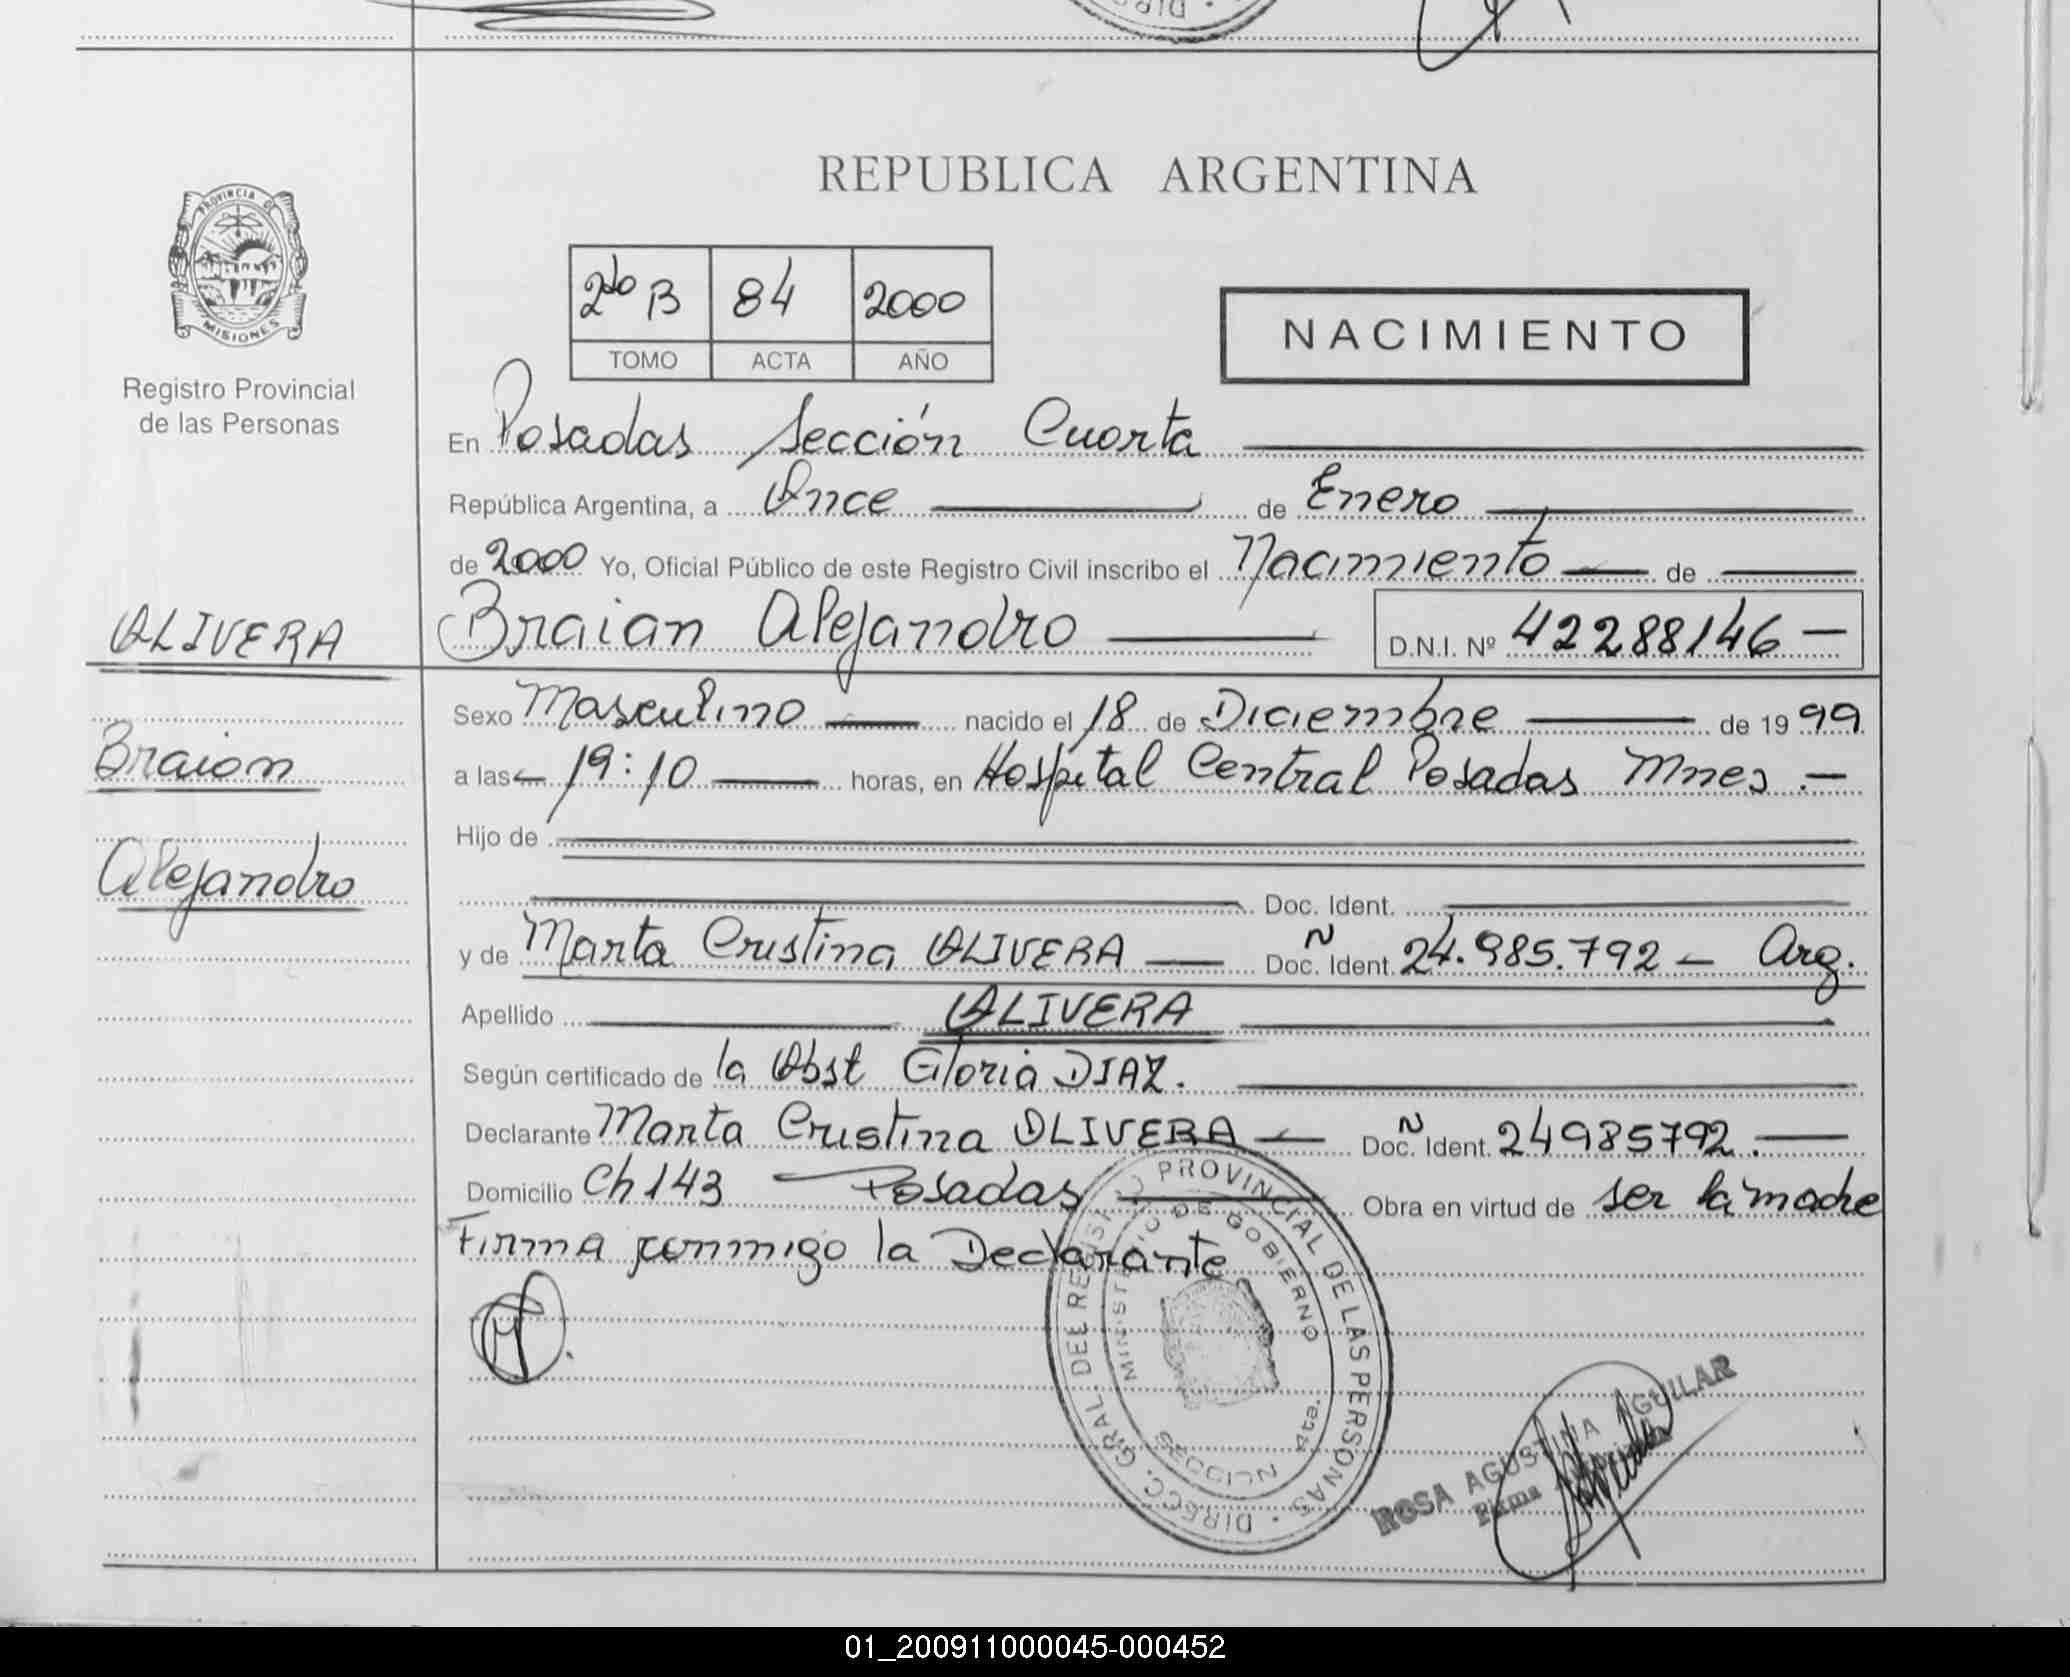 REPUBLICA ARGENTINA
PROVINCIA DE
MISIONES
Registro Provincial
de las Personas
2do B 84 2000
TOMO ACTA AÑO
NACIMIENTO
En Posadas Sección Cuarta
República Argentina, a Once de Enero
de 2000 Yo, Oficial Público de este Registro Civil inscribo el Nacimiento de
OLIVERA
Braian Alejandro D.N.I. Nº 42288146
Sexo Masculino nacido el 18 de Diciembre de 1999
Braian
a las 19:10 horas, en Hospital Central Posadas Mnes.
Hijo de
Alejandro
Doc. Ident.
y de Marta Cristina OLIVERA Doc. Ñ Ident. 24.985.792 - Arg.
Apellido OLIVERA
Según certificado de la Obst Gloria DIAZ.
Declarante Marta Cristina OLIVERA Doc. Ñ Ident. 24985792.
Domicilio Ch 143 - Posadas Obra en virtud de ser la madre
Firma conmigo la Declarante
DIRECC. GRAL DEL REGIST PROVINCIAL DE LAS PERSONAS
MINISTERIO DE GOBIERNO
SECCION 4ta.
ROSA AGUSTINA AGUILAR
Firma
01_200911000045-000452